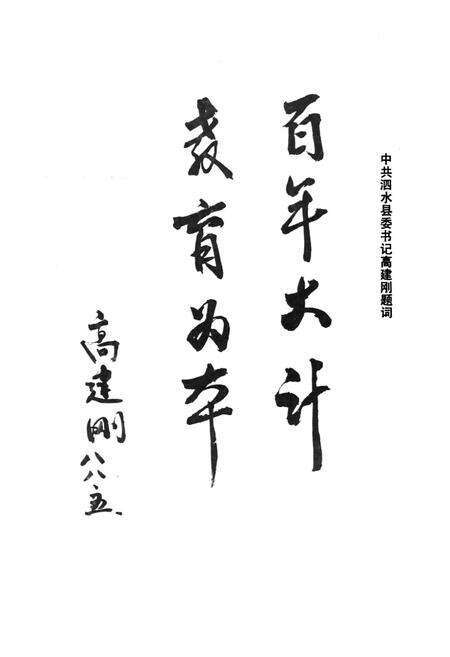 中共泗水县委书记高建刚题词
百年大计
教育为本
高建刚
八八、五、